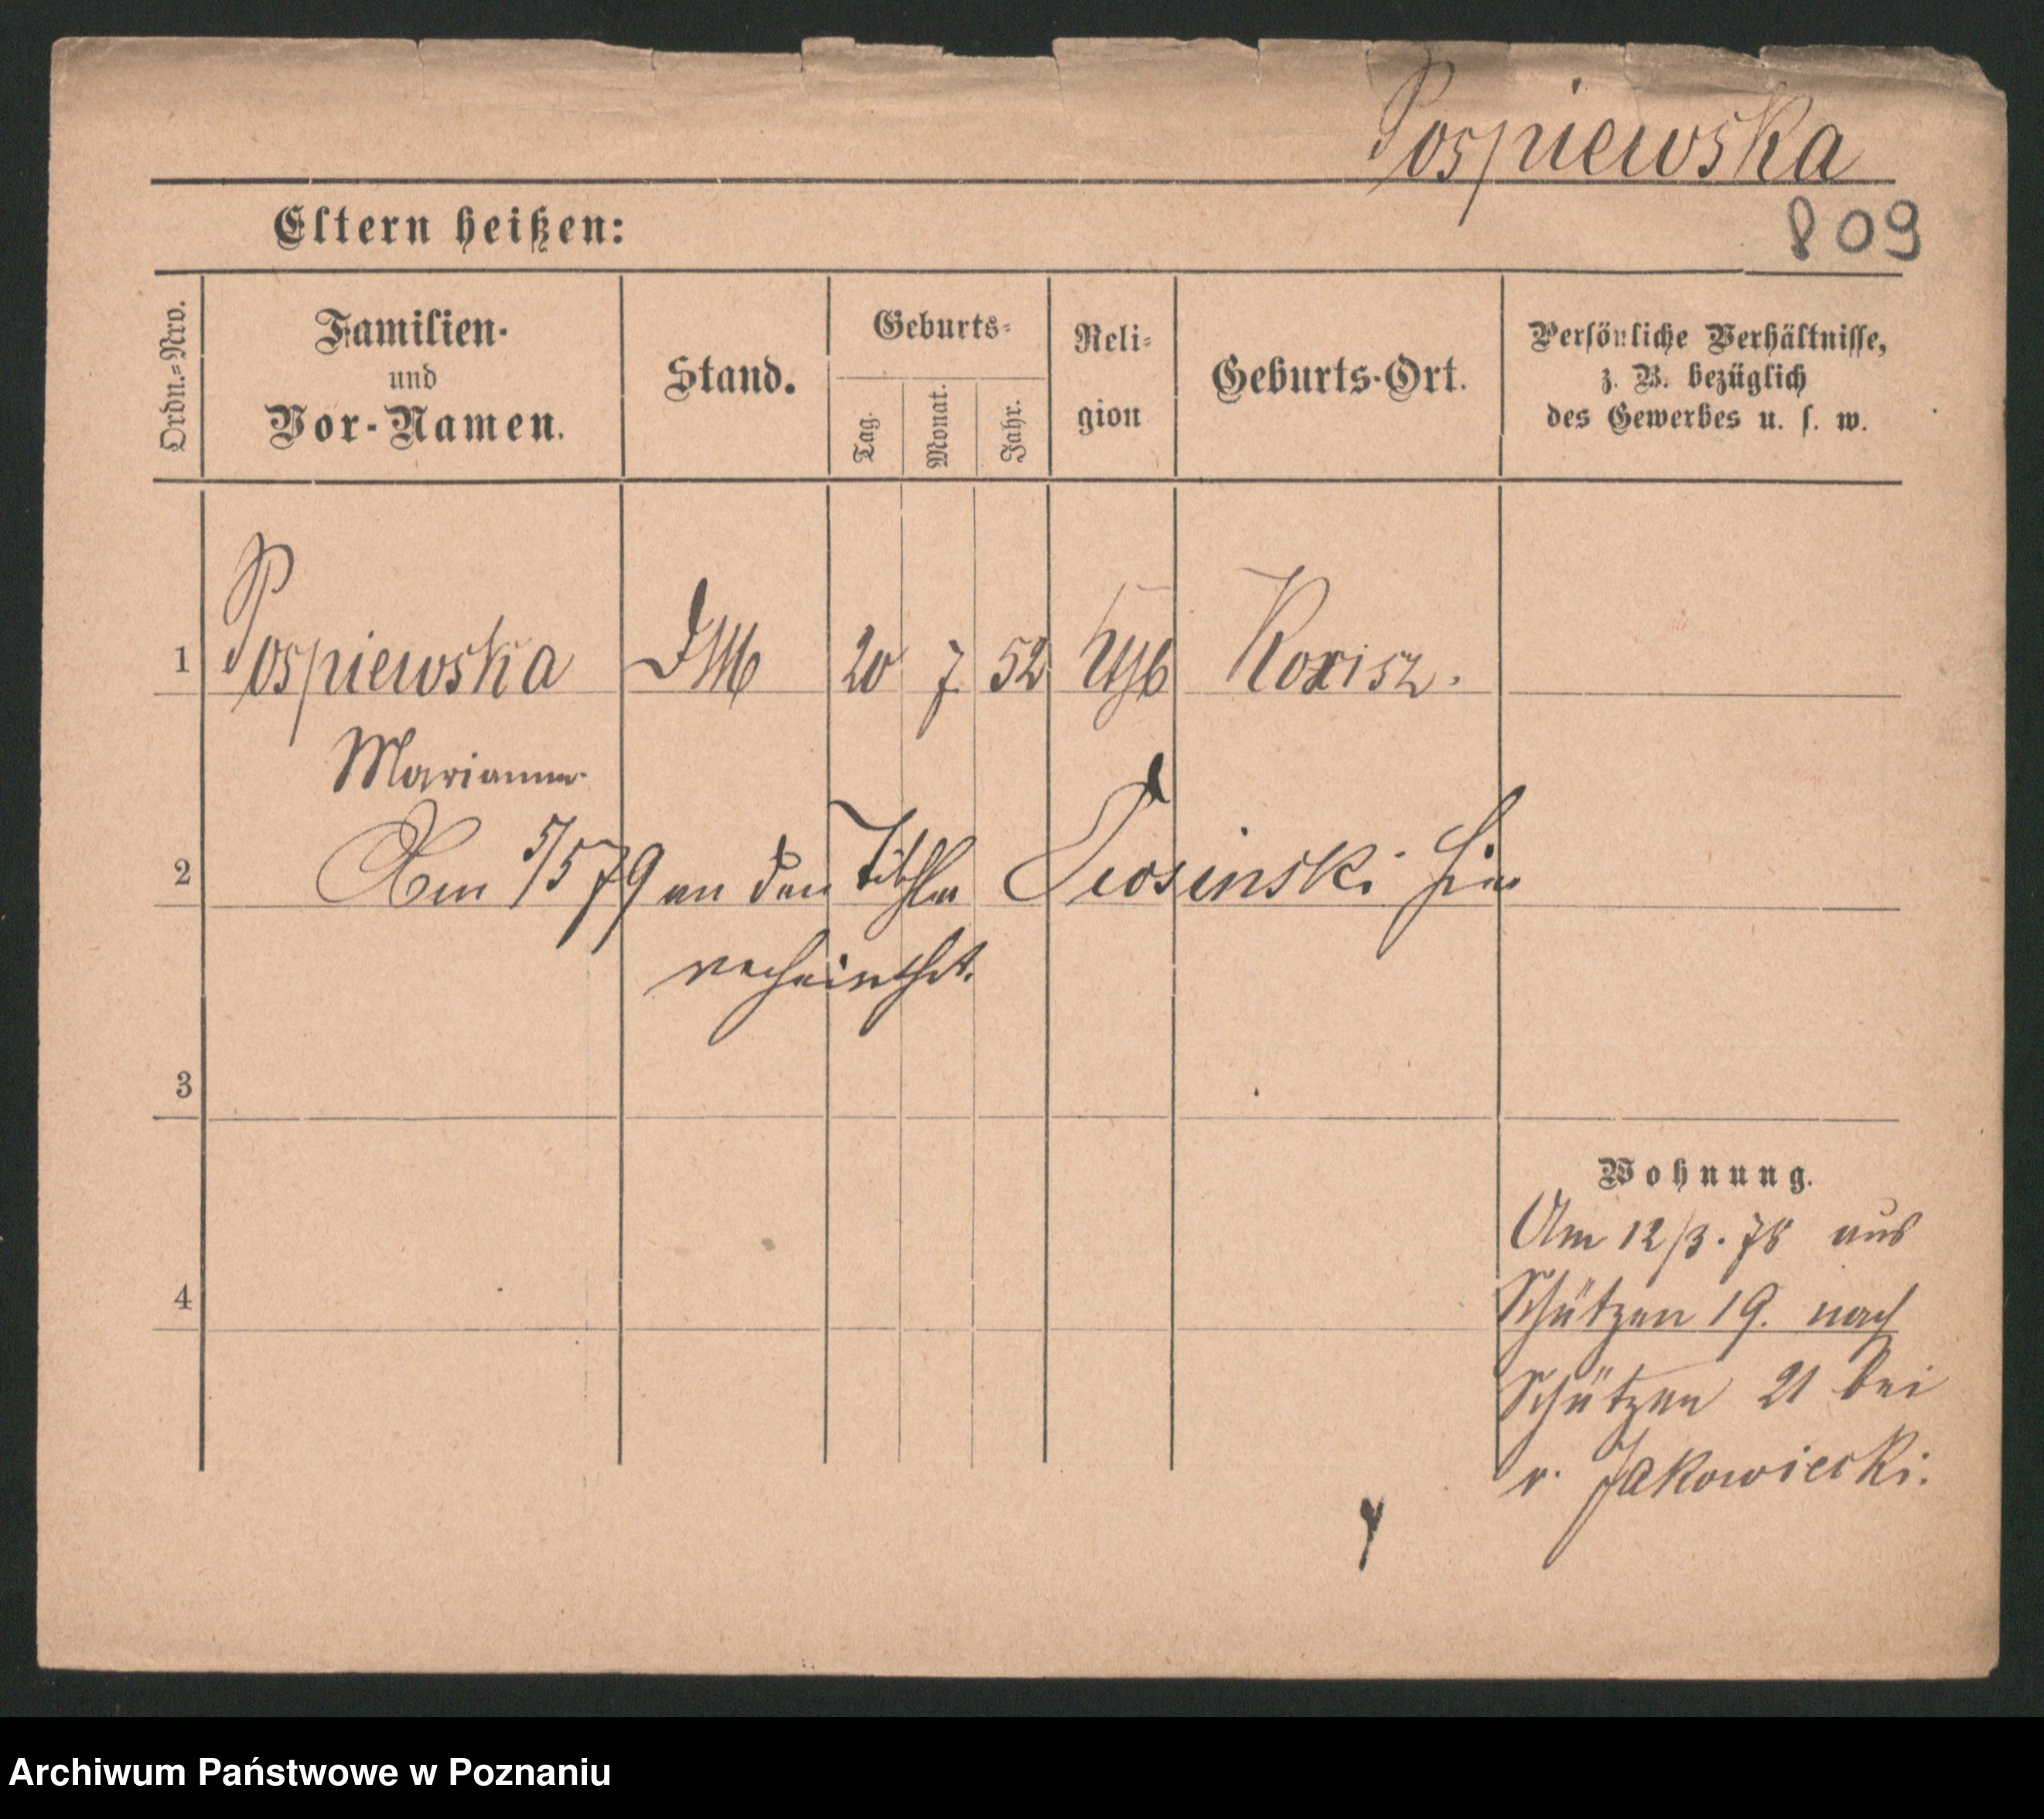 Pospiewska
809
Eltern heißen:
Ordn.-Nro.
Familien-
und
Vor-Namen.
Stand.
Geburts-
Tag.
Monat.
Jahr.
Reli-
gion
Geburts-Ort.
Persönliche Verhältnisse,
z. B. bezüglich
des Gewerbes u. s. w.
1 Pospiewska DM 20 7 52
Marianna
2 Am 5/5 79 an den Tischler hier
verheirathet.
3
Wohnung.
Am 12/3. 78 aus
4 Schützen 19. nach
Schützen 21 bei
v. Jakowicki.
Archiwum Państwowe w Poznaniu